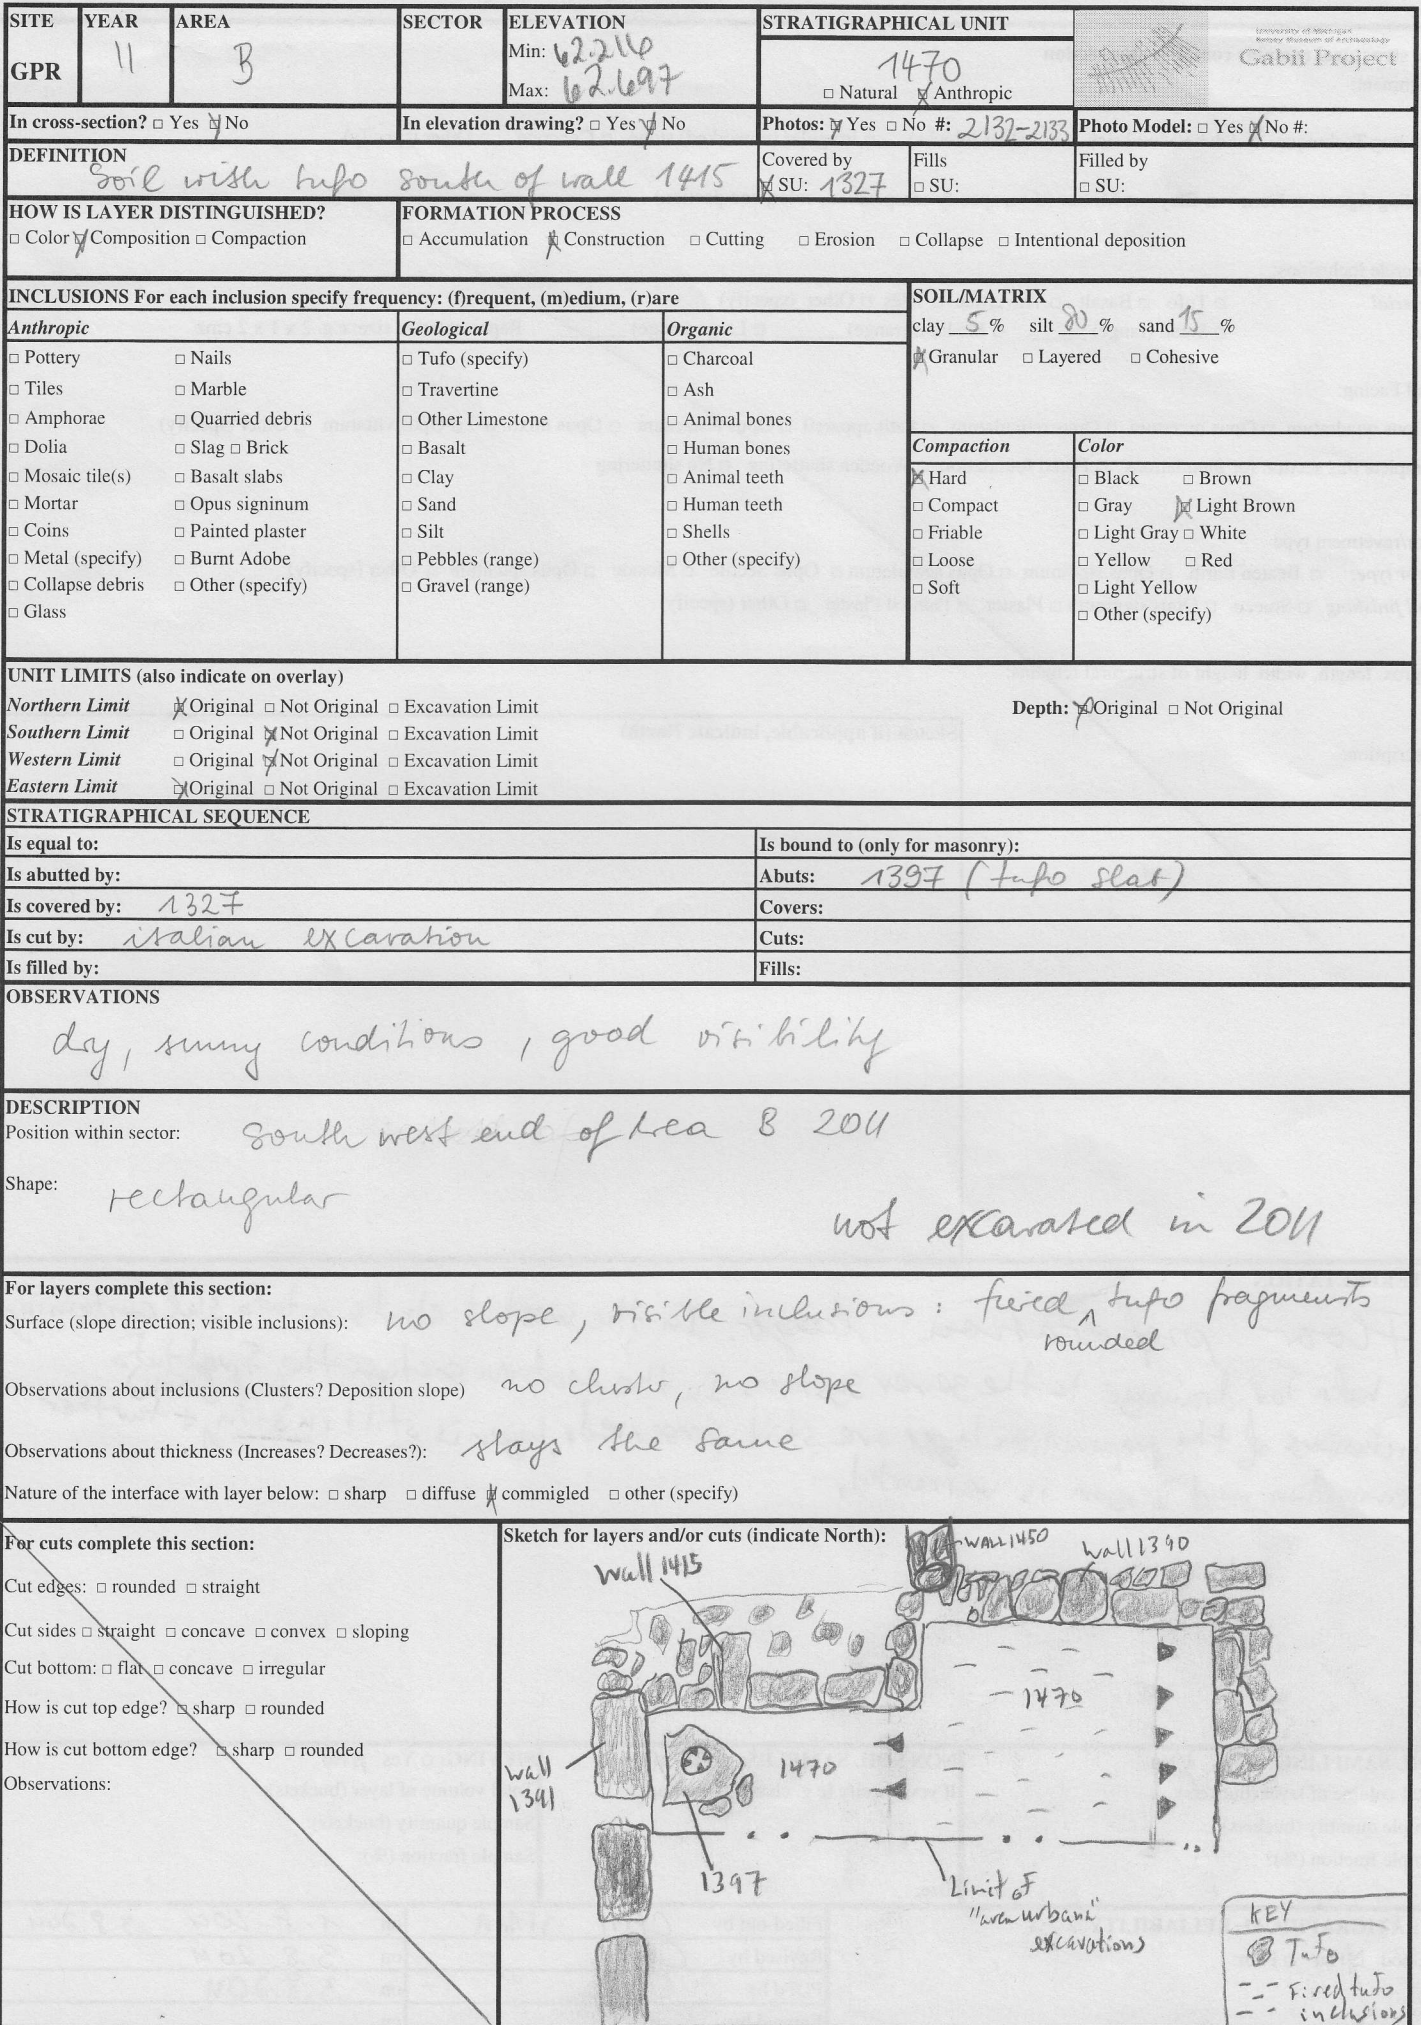 SITE YEAR AREA SECTOR ELEVATION STRATIGRAPHICAL UNIT
GPR 11 B Min: 62.216 1470
Max: 62.697 □ Natural ☒ Anthropic
University of Michigan
Kelsey Museum of Archaeology
Gabii Project
In cross-section? □ Yes ☒ No In elevation drawing? □ Yes ☒ No Photos: ☒ Yes □ No #: 2132-2133 Photo Model: □ Yes ☒ No #:
DEFINITION Soil with tufo south of wall 1415
Covered by ☒ SU: 1327 Fills □ SU: Filled by □ SU:
HOW IS LAYER DISTINGUISHED?
□ Color ☒ Composition □ Compaction
FORMATION PROCESS
□ Accumulation ☒ Construction □ Cutting □ Erosion □ Collapse □ Intentional deposition
INCLUSIONS For each inclusion specify frequency: (f)requent, (m)edium, (r)are
Anthropic
□ Pottery □ Nails
□ Tiles □ Marble
□ Amphorae □ Quarried debris
□ Dolia □ Slag □ Brick
□ Mosaic tile(s) □ Basalt slabs
□ Mortar □ Opus signinum
□ Coins □ Painted plaster
□ Metal (specify) □ Burnt Adobe
□ Collapse debris □ Other (specify)
□ Glass
Geological
□ Tufo (specify)
□ Travertine
□ Other Limestone
□ Basalt
□ Clay
□ Sand
□ Silt
□ Pebbles (range)
□ Gravel (range)
Organic
□ Charcoal
□ Ash
□ Animal bones
□ Human bones
□ Animal teeth
□ Human teeth
□ Shells
□ Other (specify)
SOIL/MATRIX
clay 5 % silt 80 % sand 15 %
☒ Granular □ Layered □ Cohesive
Compaction
☒ Hard
□ Compact
□ Friable
□ Loose
□ Soft
Color
□ Black □ Brown
□ Gray ☒ Light Brown
□ Light Gray □ White
□ Yellow □ Red
□ Light Yellow
□ Other (specify)
UNIT LIMITS (also indicate on overlay)
Northern Limit ☒ Original □ Not Original □ Excavation Limit Depth: ☒ Original □ Not Original
Southern Limit □ Original ☒ Not Original □ Excavation Limit
Western Limit □ Original ☒ Not Original □ Excavation Limit
Eastern Limit ☒ Original □ Not Original □ Excavation Limit
STRATIGRAPHICAL SEQUENCE
Is equal to: Is bound to (only for masonry):
Is abutted by: Abuts: 1397 (tufo slab)
Is covered by: 1327 Covers:
Is cut by: italian excavation Cuts:
Is filled by: Fills:
OBSERVATIONS
dry, sunny conditions, good visibility
DESCRIPTION
Position within sector: South west end of Area B 2011
Shape: rectangular
not excavated in 2011
For layers complete this section:
Surface (slope direction; visible inclusions): no slope, visible inclusions: fiered ^ tufo fragments
rounded
Observations about inclusions (Clusters? Deposition slope) no cluster, no slope
Observations about thickness (Increases? Decreases?): stays the same
Nature of the interface with layer below: □ sharp □ diffuse ☒ commigled □ other (specify)
For cuts complete this section:
Cut edges: □ rounded □ straight
Cut sides □ straight □ concave □ convex □ sloping
Cut bottom: □ flat □ concave □ irregular
How is cut top edge? □ sharp □ rounded
How is cut bottom edge? □ sharp □ rounded
Observations:
Sketch for layers and/or cuts (indicate North):
WALL 1450
wall 1390
Wall 1415
1470
1470
wall
1391
1397
Limit of
"area urbana"
excavations
KEY
Tufo
Fired tufo
inclusions